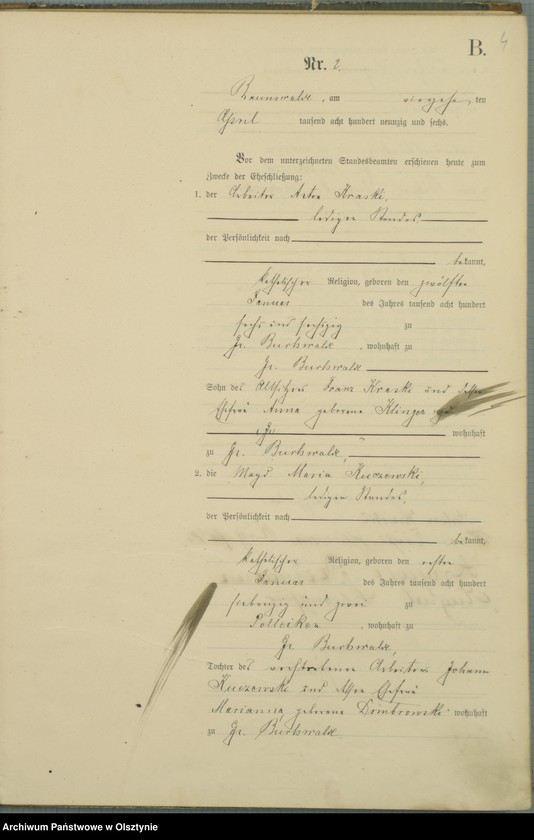 B. 4
Nr. 2.
Braunswalde, am vierzehn ten
April tausend acht hundert neunzig und sechs.
Vor dem unterzeichneten Standesbeamten erschienen heute zum
Zwecke der Eheschließung:
1. der Arbeiter Kraski,
ledigen Standes,
der Persönlichkeit nach
bekannt,
katholischer Religion, geboren den zwölften
Januar des Jahres tausend acht hundert
sechs und sechszig zu
Gr. Buchwald, wohnhaft zu
Gr. Buchwald
Sohn des Altsitzers Franz Kraski und dessen
Ehefrau Anna geborene
wohnhaft
zu Gr. Buchwald,
2. die Magd Maria Kuczewski,
ledigen Standes,
der Persönlichkeit nach
bekannt,
katholischer Religion, geboren den ersten
Januar des Jahres tausend acht hundert
siebenzig und zwei zu
wohnhaft zu
Gr. Buchwald,
Tochter des verstorbenen Arbeiters Johann
Kuczewski und Ehefrau
Marianna, geborene Dombrowski wohnhaft
zu Gr. Buchwald.
Archiwum Państwowe w Olsztynie